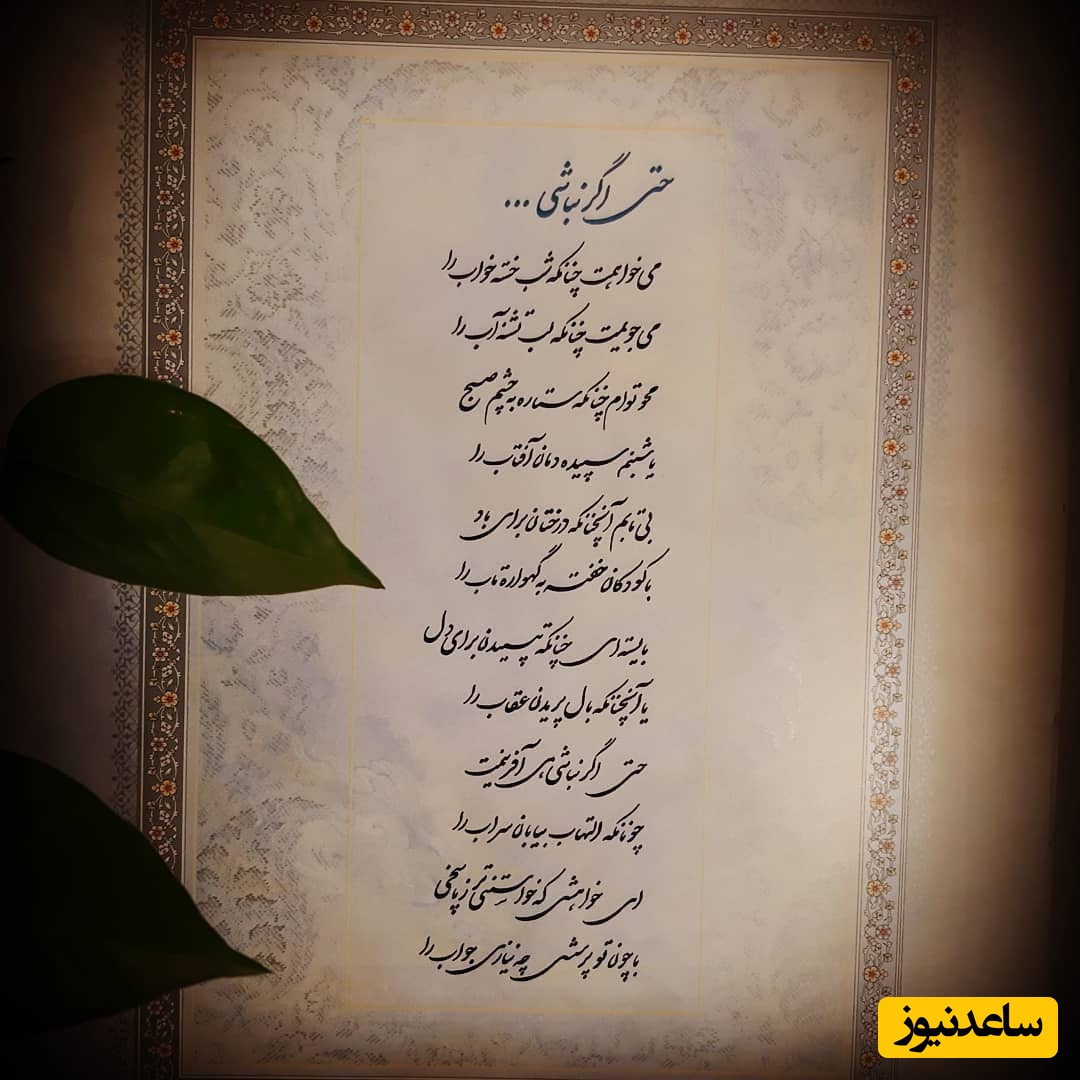 حتی اگر نباشی ...
می خواهمت چنانکه شب خسته خواب را
می جویمت چنانکه لب تشنه آب را
محو توام چنانکه ستاره به چشم صبح
یا شبنم سپیده دمان آفتاب را
بی تابم آنچنانکه درختان برای باد
یا کودکان خفته به گهواره تاب را
بایسته ای چنانکه تپیدن برای دل
یا آنچنانکه بال پریدن عقاب را
حتی اگر نباشی می آفرینمت
چونانکه التهاب بیابان سراب را
ای خواهشی که خواستنی تر ز پاسخی
با چون تو پرسشی چه نیازی جواب را
ساعدنیوز